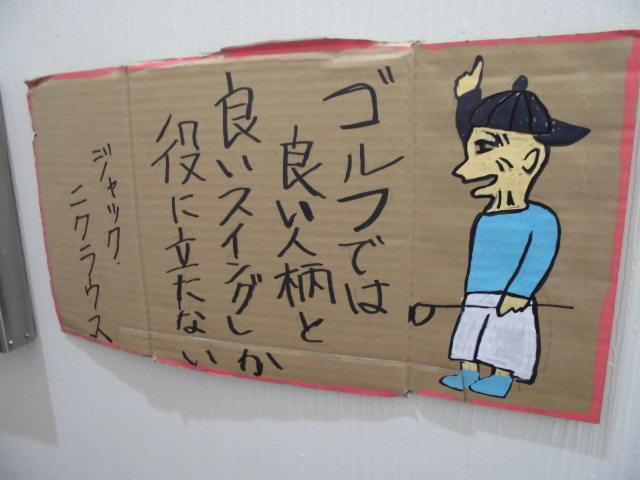 ゴルフでは
良い人柄と
良いスイングしか
役に立たない
ジャック・
ニクラウス